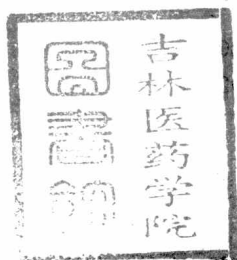 吉林医药学院
图书馆